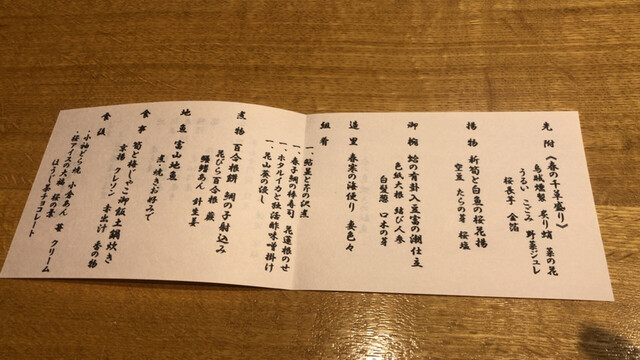 先附 《春の千草盛り》
烏賊燻製 炙り蛸 菜の花
うるい こごみ 野菜ジュレ
桜長芋 金箔
揚物 新筍と白魚の桜花揚
空豆 たらの芽 桜塩
御椀 蛤の有卦入豆富の潮仕立
色紙大根 結び人参
白髪葱 口木の芽
造里 春寒の海便り 妻色々
組肴
一、鮎並と芹の沢煮
一、春子鯛の棒寿司 花蓮根のせ
一、ホタルイカと独活酢味噌掛け
一、花山葵の浸し
煮物 百合根餅 鯛の子射込み
花びら百合根 蕨
鼈甲あん 針生姜
地魚 富山地魚
煮・焼きお好みで
食事 筍と桜じゃこ御飯土鍋炊き
京揚 クレソン 赤出汁 香の物
食後
・小袖どら焼 小倉あん 苺 クリーム
・桜アイスの大福 桜の葉
ほうじ茶チョコレート